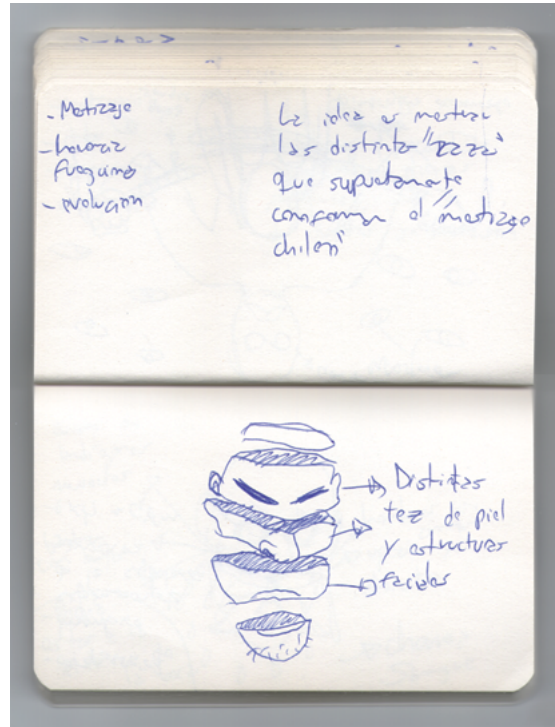 - Metizaje
- 
fueguina
- evolucion
La idea es mostrar
las distinta "raza"
que supuetamente
conforman el "mestizaje
chileno"
Distintas
tez de piel
y estructuras
faciales